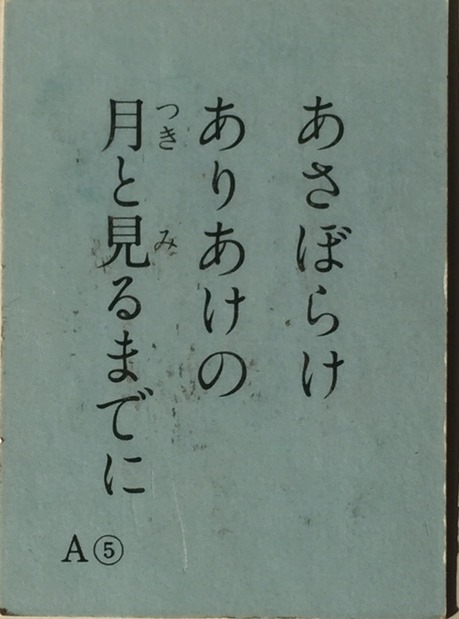 あさぼらけ
ありあけの
月と見るまでに
つき
み
A⑤